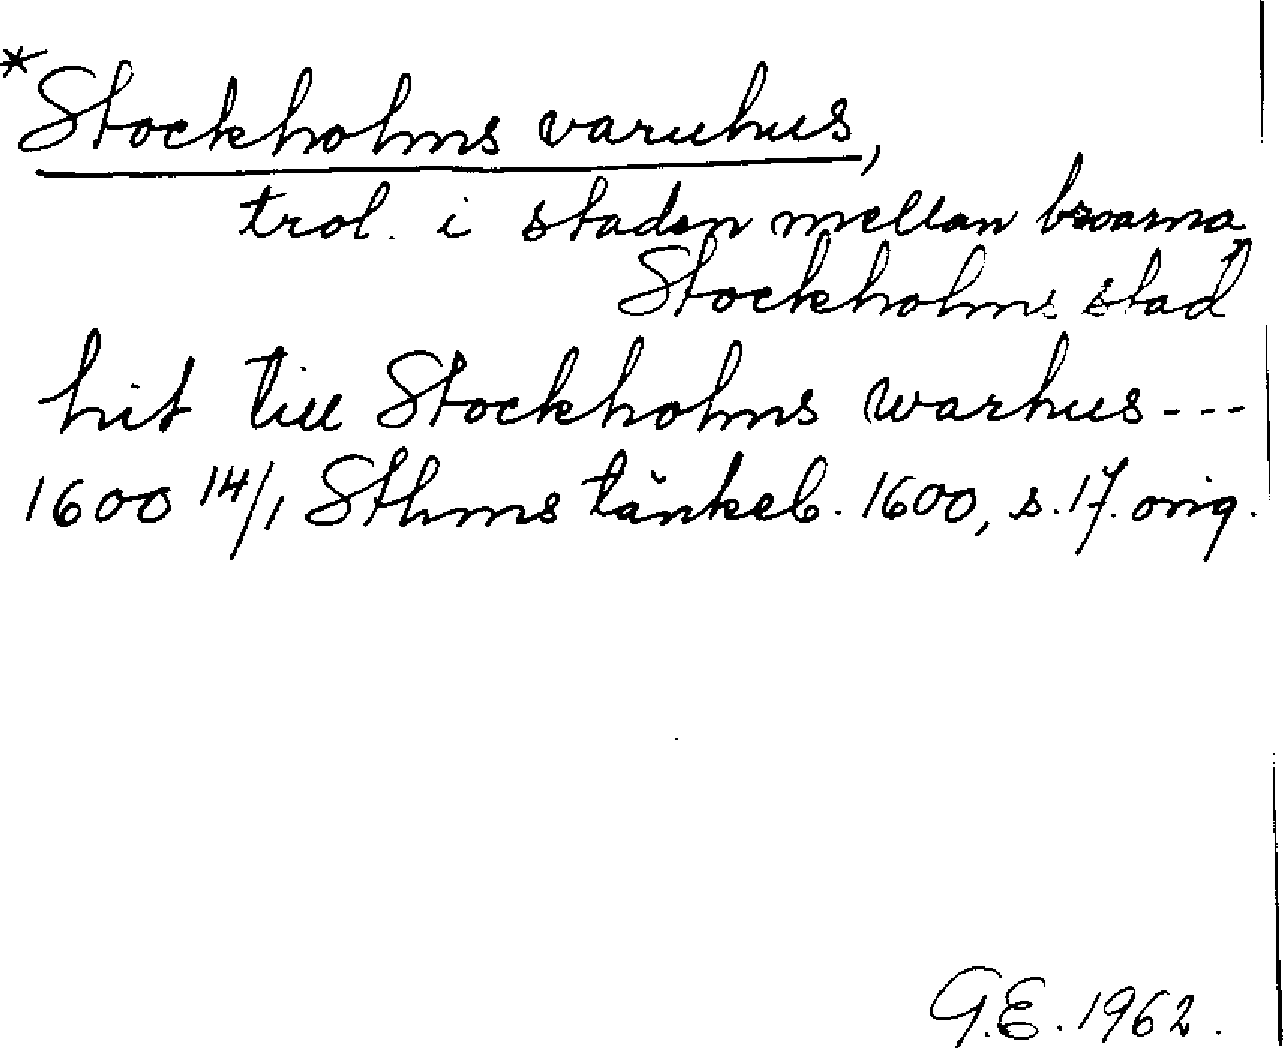 *Stockholms varuhus,
trol. i staden mellan broarna,
Stockholms stad
hit till Stockholms warhus ---
1600 14/1 Sthms tänkeb. 1600, s. 17. orig.
G.E. 1962.